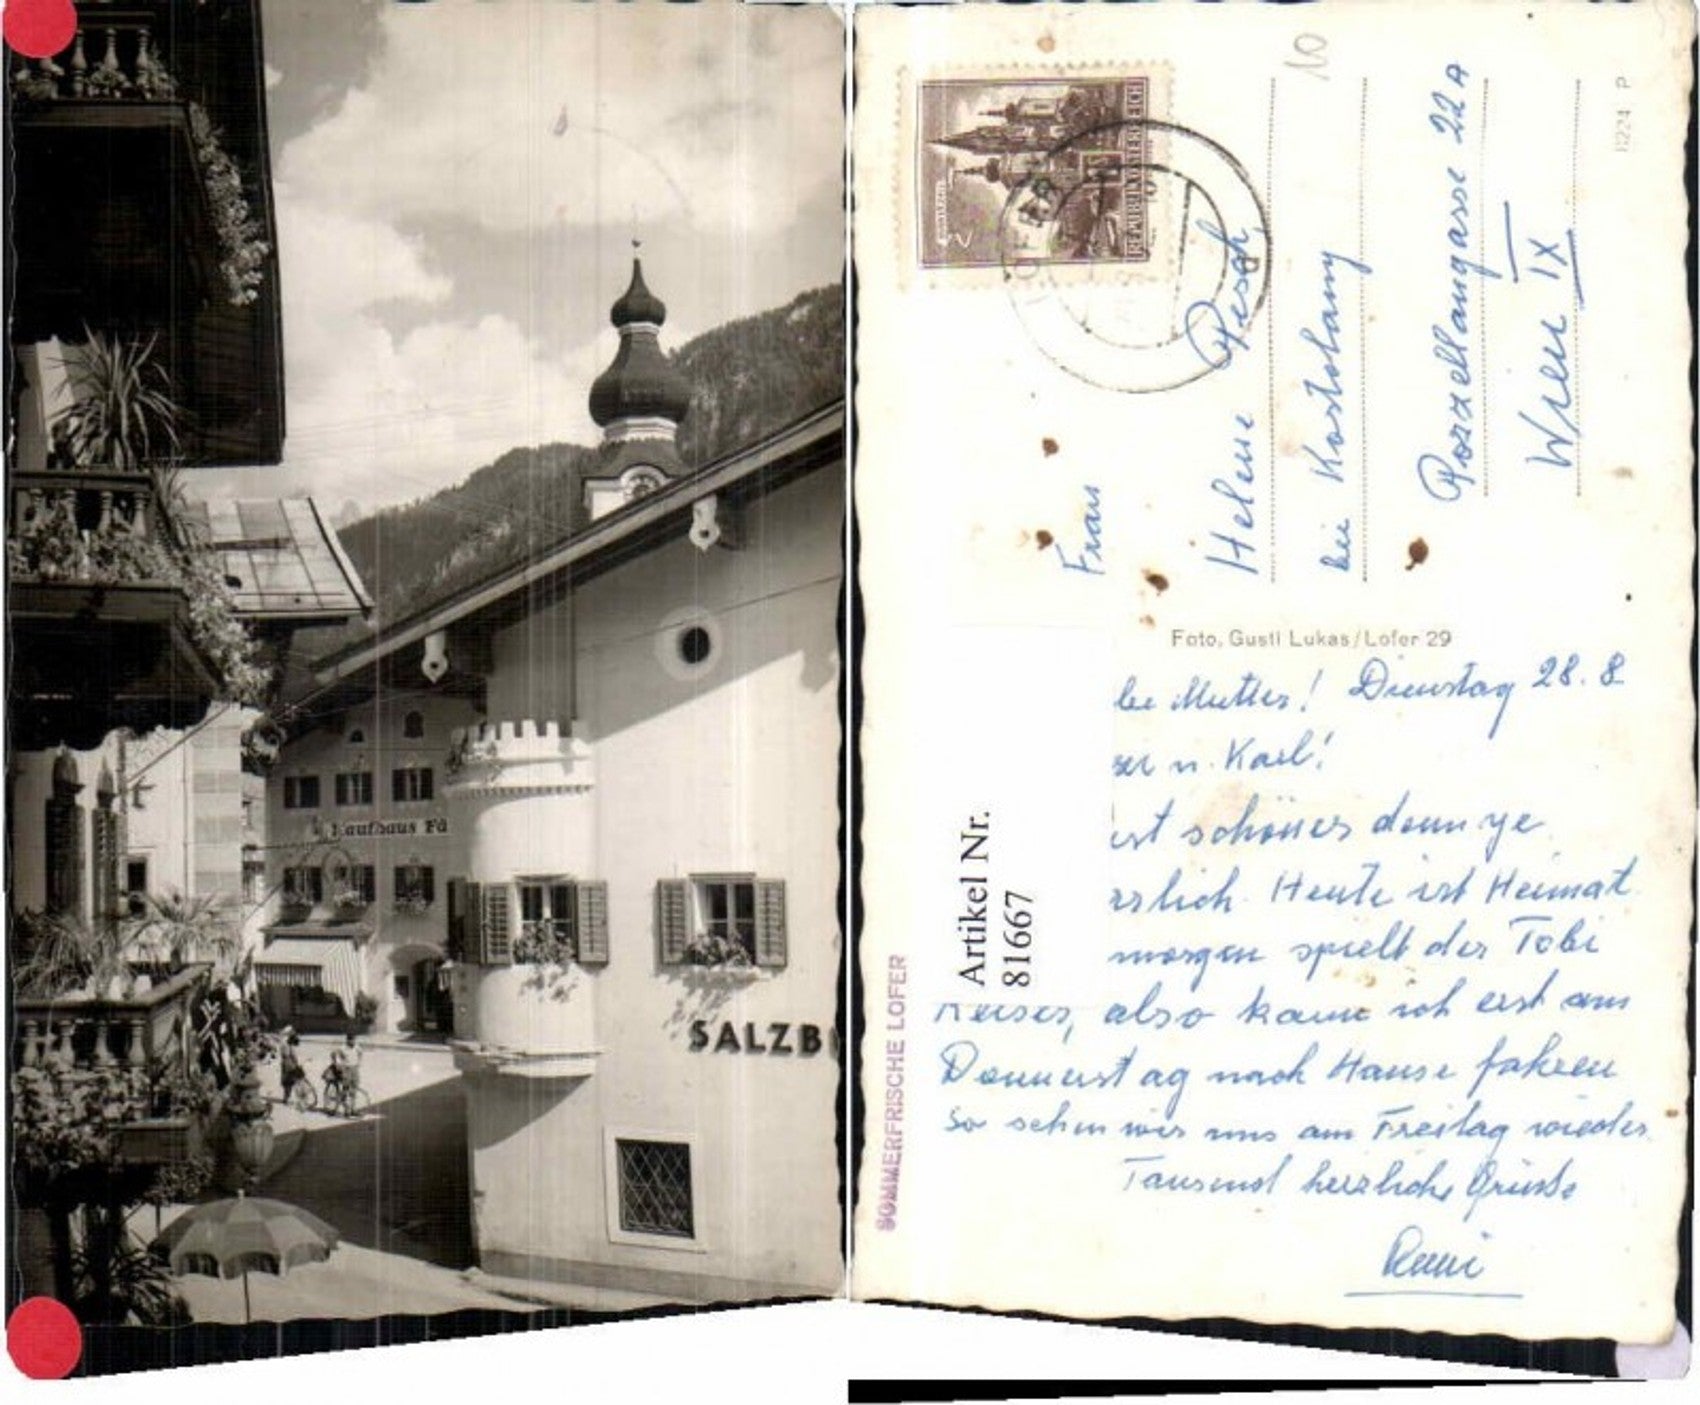 Kaufhaus Fä
SALZB
REPUBLIK ÖSTERREICH
LOFER
10
Frau
Helene Pesch
bei Kostohany
Porzellangasse 22A
Wien IX
8224 P
Foto, Gustl Lukas/Lofer 29
Artikel Nr.
81667
SOMMERFRISCHE LOFER
be Mutter! Dienstag 28.8
u. Karl!
ist schöner denn je
rrlich. Heute ist Heimat
morgen spielt der Tobi
Reiser, also kann ich erst am
Donnerstag nach Hause fahren
so sehn wir uns am Freitag wieder.
Tausend herzliche Grüsse